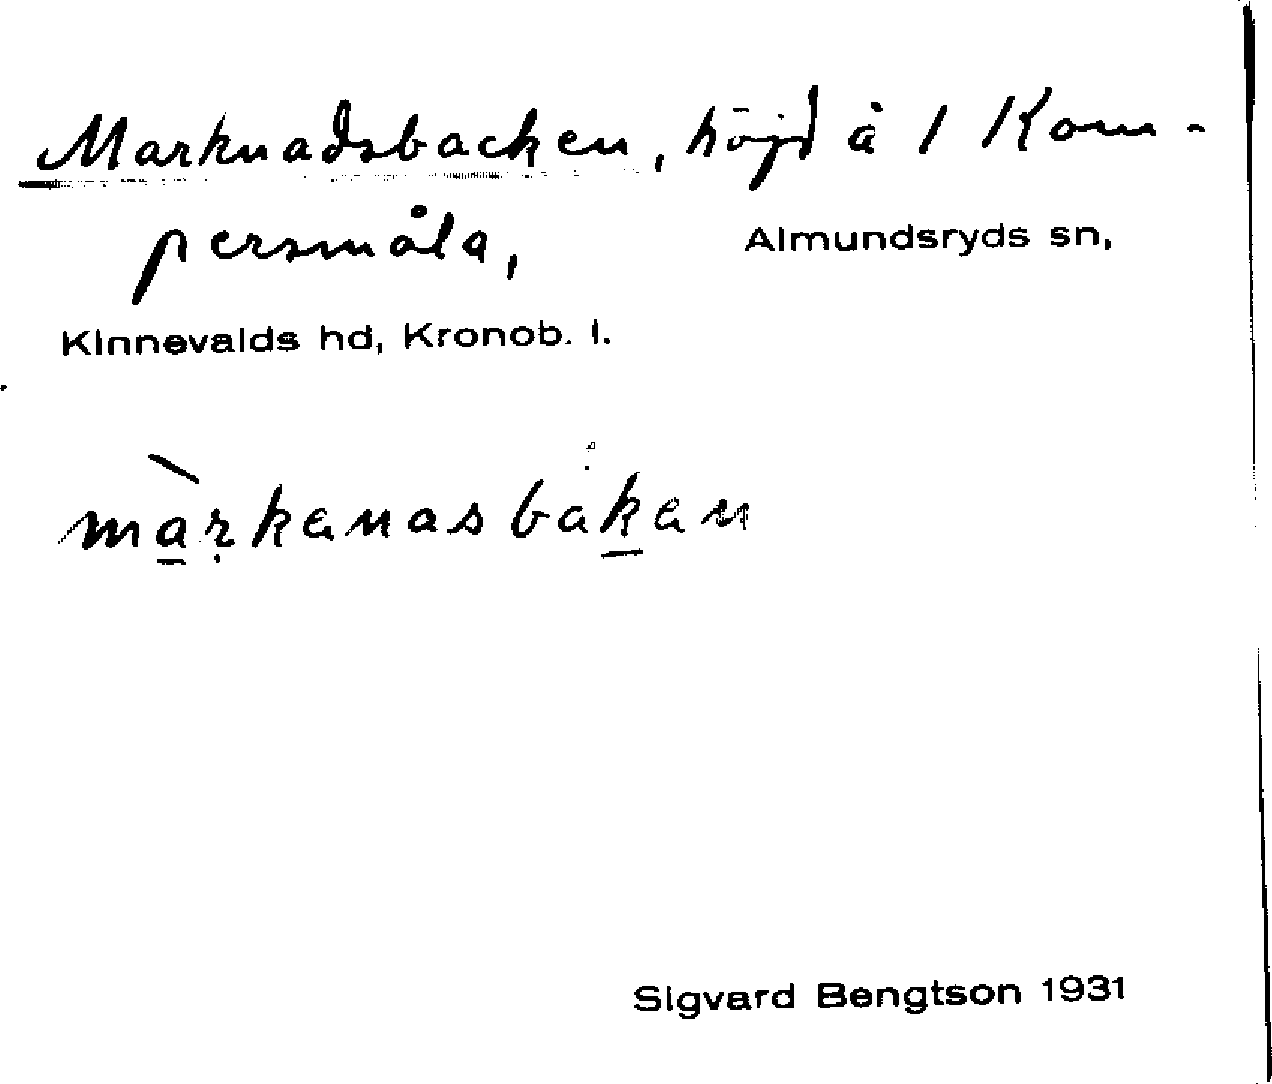 Marknadsbacken, höjd å 1 Kom-
persmåla, Almundsryds sn,
Kinnevalds hd, Kronob. l.
màrkanasbakan
Sigvard Bengtson 1931